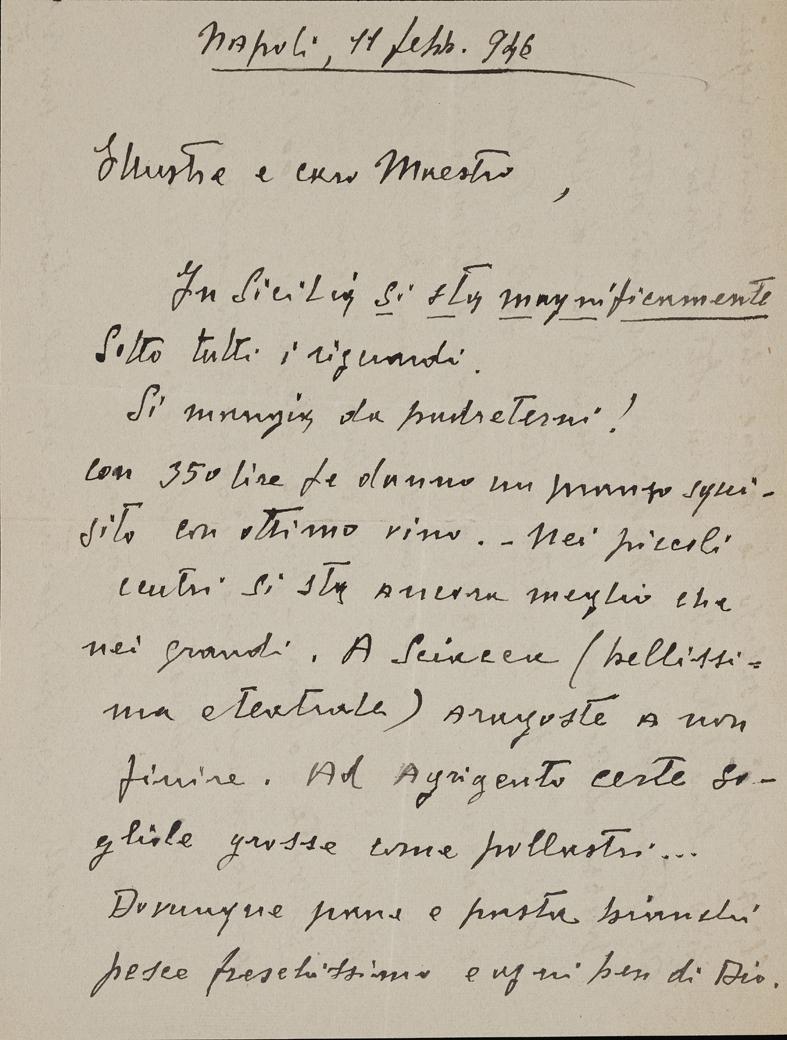 Napoli, 11 febb. 946
Illustre e caro Maestro,
In Sicilia si sta magnificamente
sotto tutti i riguardi.
Si mangia da padreterni!
con 350 lire te danno un pranzo squi-
sito con ottimo vino. - Nei piccoli
centri si sta ancora meglio che
nei grandi. A Sciacca (bellissi=
ma e teatrale) aragoste a non
finire. Ad Agrigento certe so-
gliole grosse come pollastri...
Dovunque pane e pasta bianchi
pesce freschissimo e ogni ben di Dio.